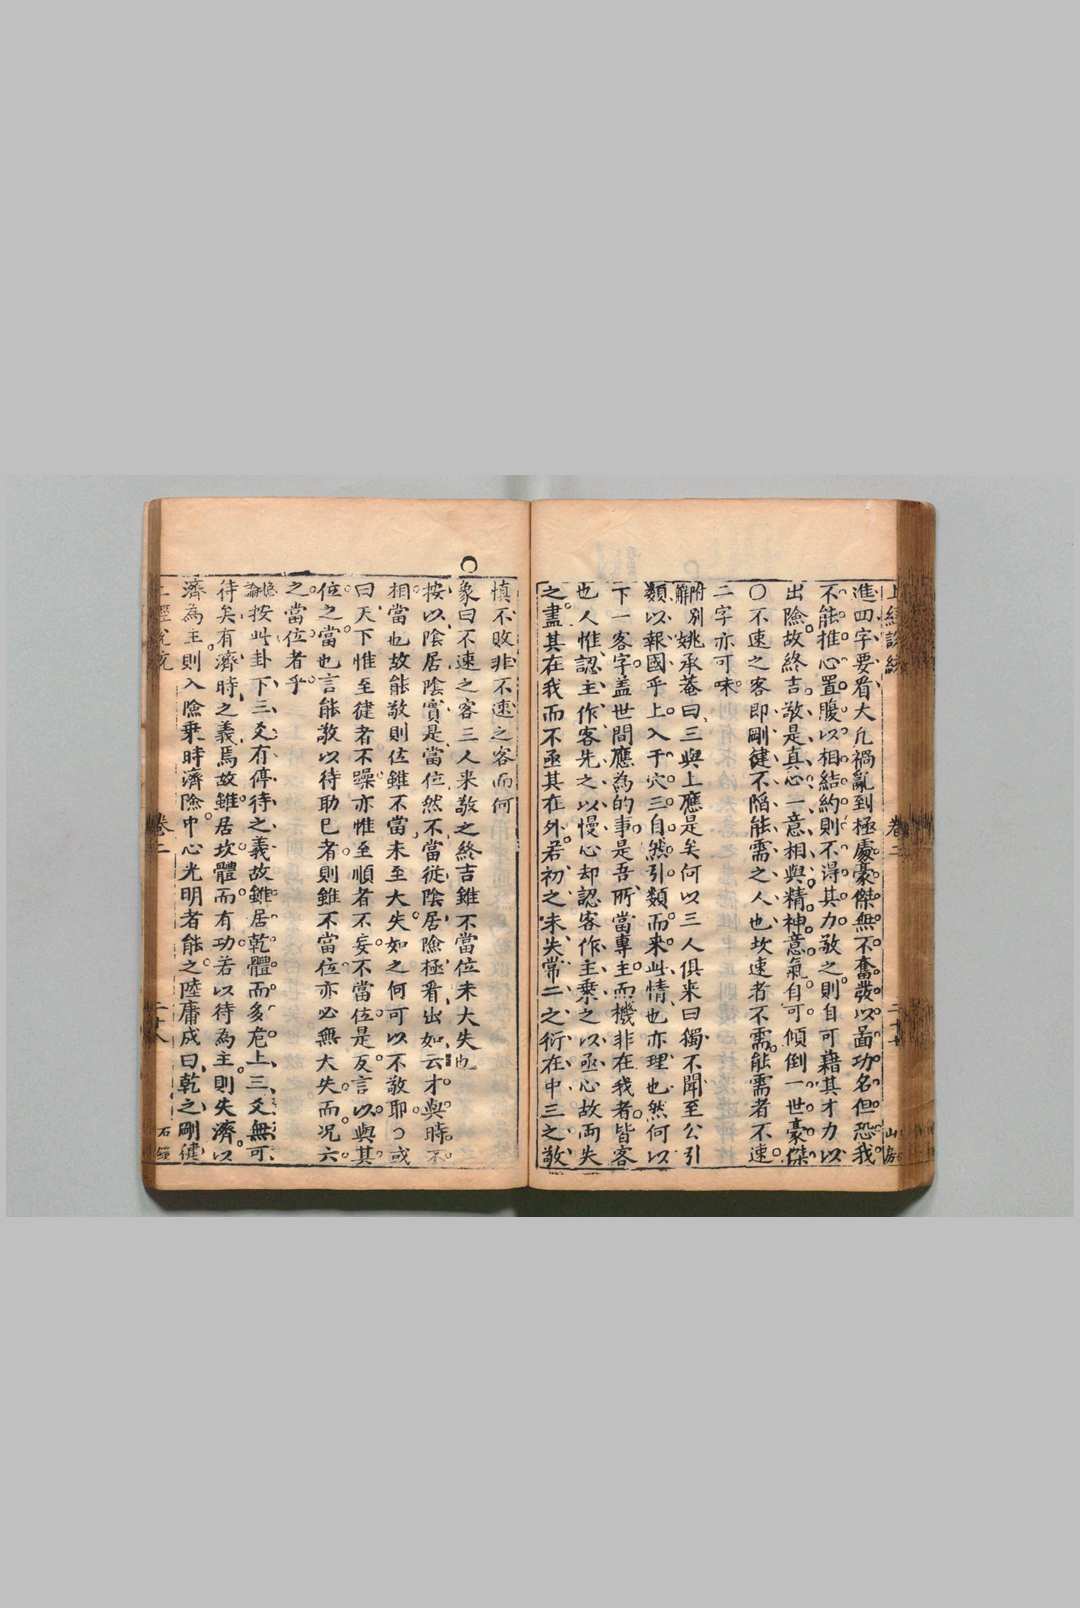 進四字要看大凡禍亂到極處豪傑無不奮發以啚功名但恐我
不能推心置腹以相結約則不得其力敬之則自可藉其才力以
出險故終吉敬是真心一意相與精神意氣自可傾倒一世豪傑
〇不速之客即剛健不陷能需之人也坎速者不需能需者不速
二字亦可味
附別觧姚承菴曰三與上應是矣何以三人俱来曰獨不聞至公引
類以報國乎上入于穴三自然引類而来此情也亦理也然何以
下一客字盖世間應為的事是吾所當專主而機非在我者皆客
也人惟認主作客先之以慢心却認客作主乗之以亟心故両失
之盡其在我而不亟其在外若初之未失常二之衍在中三之敬
慎不敗非不速之客而何
象曰不速之客三人来敬之終吉雖不當位未大失也
按以陰居陰實是當位然不當從陰居險極看出如云才與時不
相當也故能敬則位雖不當未至大失如之何可以不敬耶〇或
曰天下惟至健者不躁亦惟至順者不妄不當位是反言以與其
位之當也言能敬以待助已者則雖不當位亦必無大失而况六
之當位者乎
總論按此卦下三爻有停待之義故雖居乾體而多危上三爻無可
待矣有濟時之義焉故雖居坎體而有功若以待為主則失濟以
濟為主則入險乗時濟險中心光明者能之陸庸成曰乾之剛健
卷二
二十八
石鏡
卷二
山房